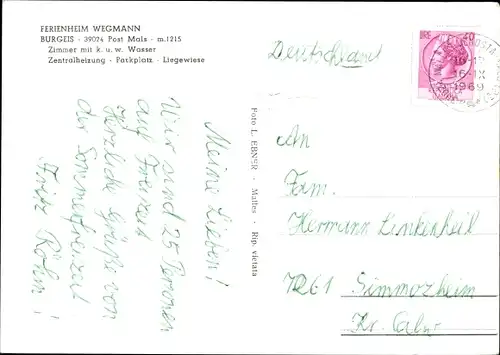 FERIENHEIM WEGMANN
BURGEIS · 39024 Post Mals · m.1215
Zimmer mit k. u. w. Wasser
Zentralheizung · Parkplatz · Liegewiese
Meine Lieben!
Wir sind 25 Personen
auf Freizeit
Herzliche Grüße von
der Sommerfreizeit
Fritz Röhm!
Foto L. EBNER · Malles · Rip. vietata
Deutschland
LIRE 40
16-IX
1969
An
Fam.
Hermann Linkenheil
7261 Simmozheim
Kr. Calw